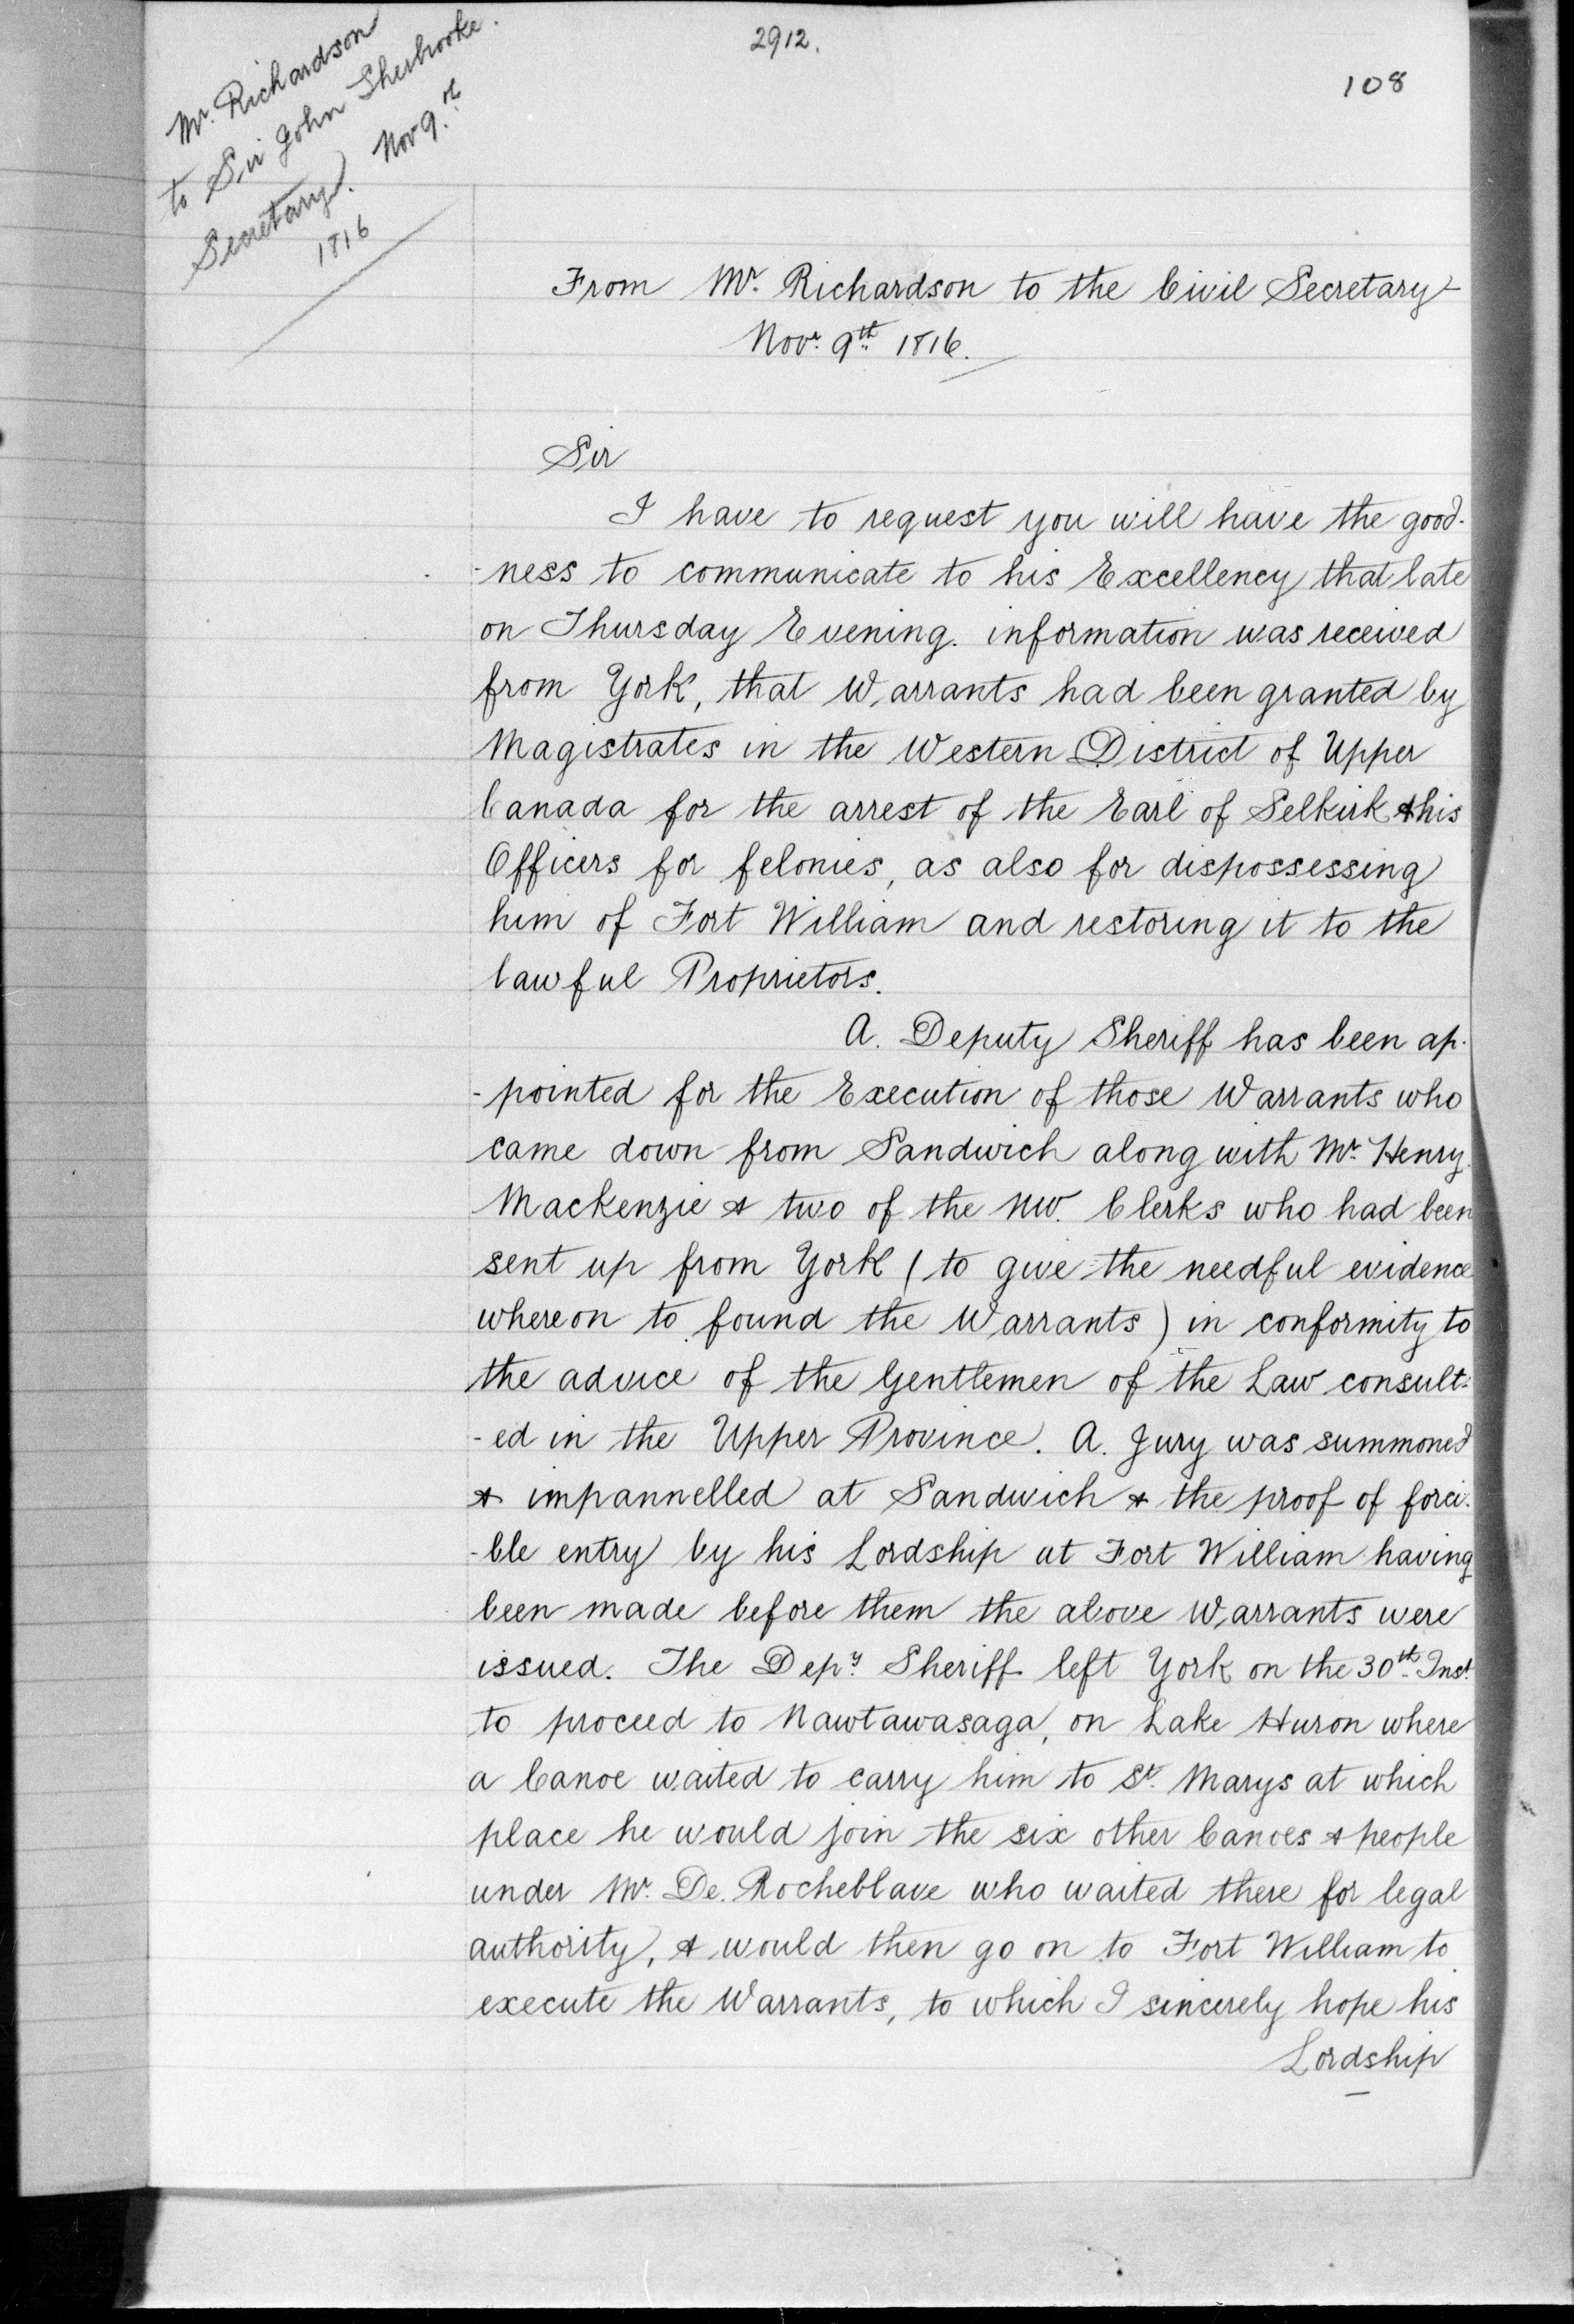 2912.
108
Mr. Richardson
to Sir John Sherbrooke.
Secretary. Nov 9.th
1816
From Mr. Richardson to the Civil Secretary
Novr. 9th 1816.
Sir
I have to request you will have the good-
-ness to communicate to his Excellency that late
on Thursday Evening. information was received
from York, that Warrants had been granted by
Magistrates in the Western District of Upper
Canada for the arrest of the Earl of Selkirk & his
Officers for felonies, as also for dispossessing
him of Fort William and restoring it to the
lawful Proprietors.
A. Deputy Sheriff has been ap-
-pointed for the Execution of those Warrants who
came down from Sandwich along with Mr. Henry
Mackenzie & two of the NW. Clerks who had been
sent up from York (to give the needful evidence
whereon to found the Warrants) in conformity to
the advice of the Gentlemen of the Law consult-
-ed in the Upper Province. A. Jury was summoned
& impannelled at Sandwich & the proof of forci-
-ble entry by his Lordship at Fort William having
been made before them the above Warrants were
issued. The Depy. Sheriff left York on the 30th. Inst.
to proceed to Nawtawasaga, on Lake Huron where
a Canoe waited to carry him to St. Marys at which
place he would join the six other Canoes & people
under Mr. De. Rocheblave who waited there for legal
authority, & would then go on to Fort William to
execute the Warrants, to which I sincerely hope his
Lordship